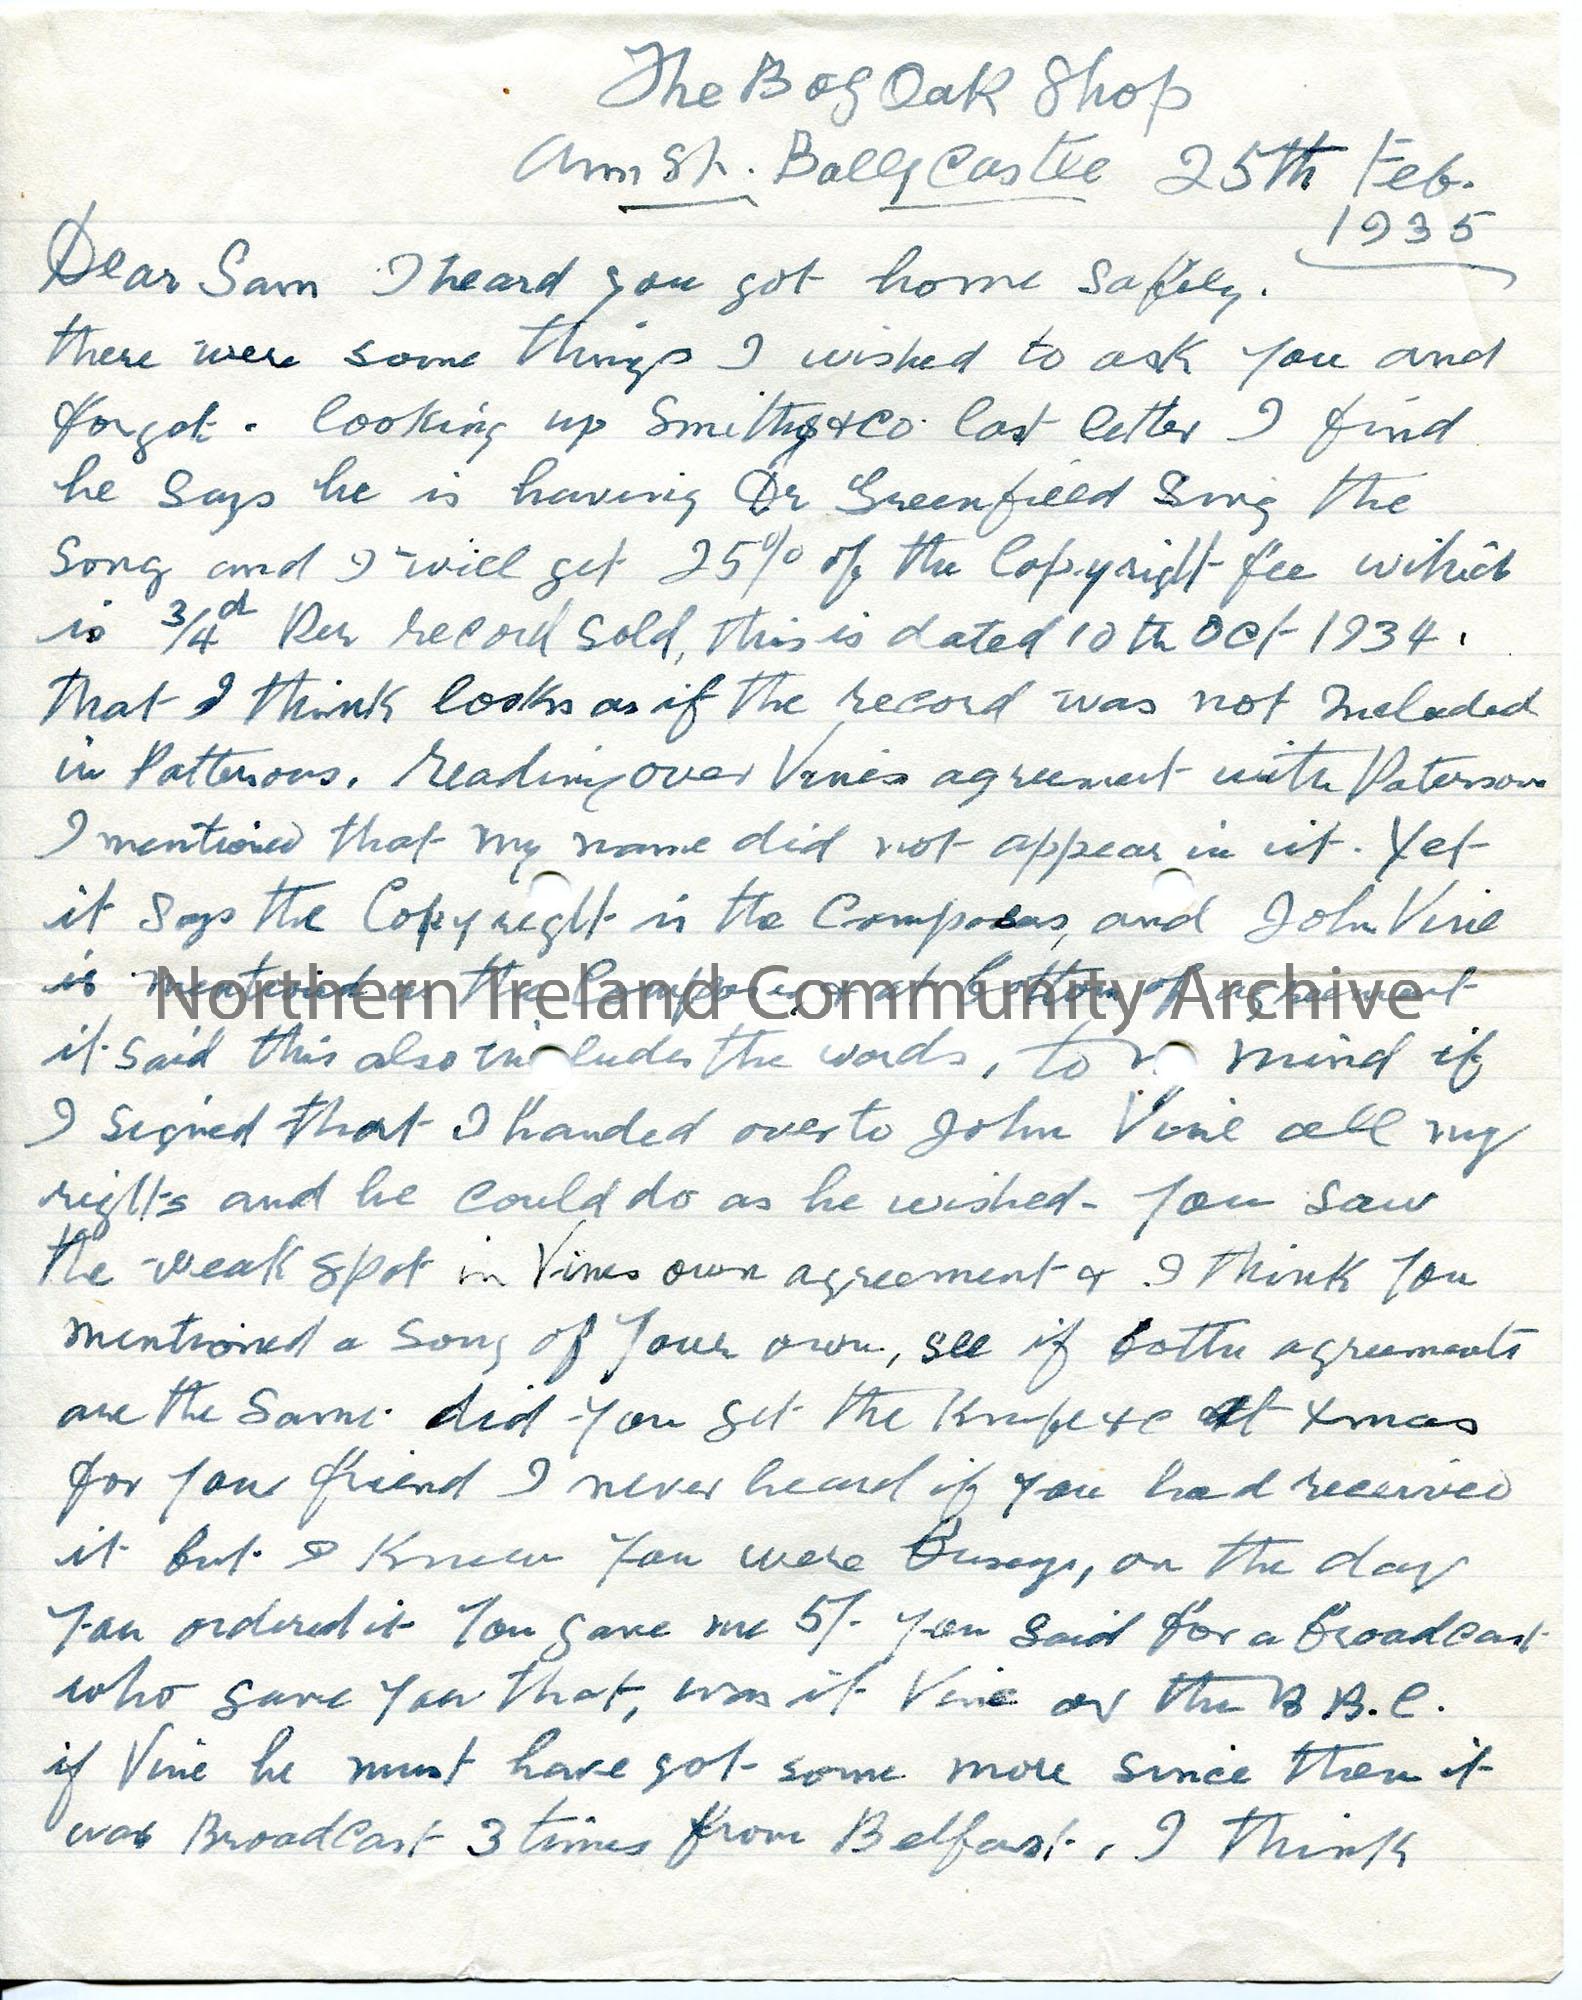 The Bog Oak Shop
Ann St. Ballycastle 25th Feb.
1935
Dear Sam I heard you got home safely.
there were some things I wished to ask you and
forgot. looking up Smiths & Co. last letter I find
he says he is having Dr Greenfield Sing the
Song and I will get 25% of the Copyright fee which
is 3/4d Per record sold, this is dated 10th Oct 1934.
that I think looks as if the record was not Included
in Pattersons. reading over Vines agreement with Paterson
I mentioned that my name did not appear in it. Yet
it says the Copyright is the Composers, and John Vine
is mentioned as the Composer, & at bottom of agreement
it said this also includes the words, to mind if
I signed that I handed over to John Vine all my
rights and he could do as he wished- You saw
the weak spot in Vines own agreement & I think you
mentioned a song of your own, see if both agreements
are the same. did you get the Knife &c at Xmas
for your friend I never heard if you had received
it but I knew you were Busy, on the day
you ordered it You gave me 5/- you said for a broadcast
who gave you that, was it Vine or the B B.C.
if Vine he must have got some more since then it
was Broadcast 3 times from Belfast, I think
Northern Ireland Community Archive